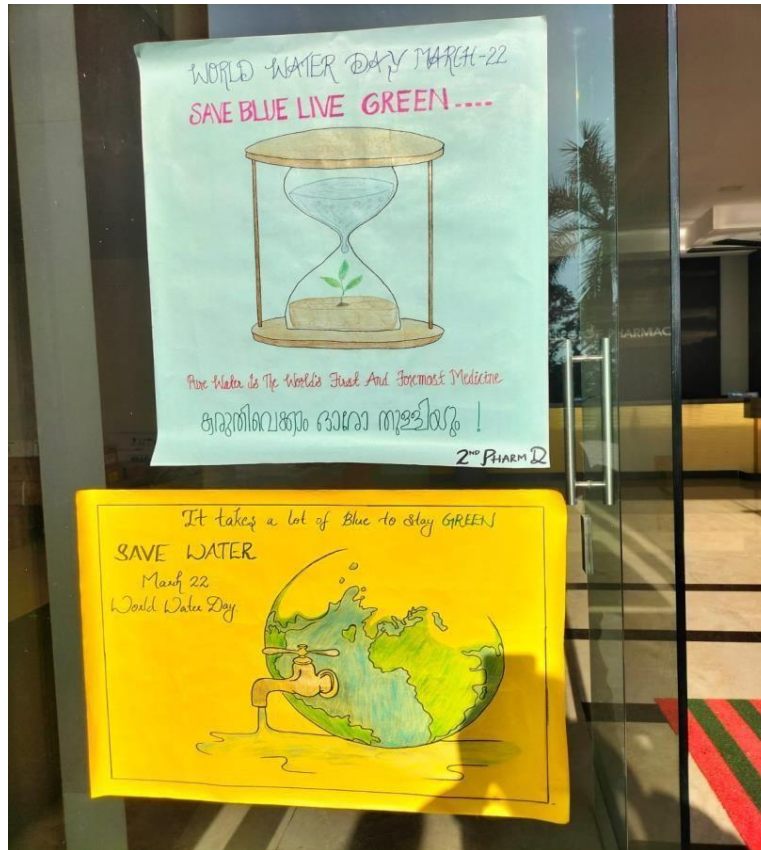 WORLD WATER DAY MARCH-22
SAVE BLUE LIVE GREEN....
Pure Water Is The World's First And Foremost Medicine
കരുതിവെക്കാം ഓരോ തുള്ളിയും !
2ND PHARM D
PHARMAC
It takes a lot of Blue to stay GREEN
SAVE WATER
March 22
World Water Day.